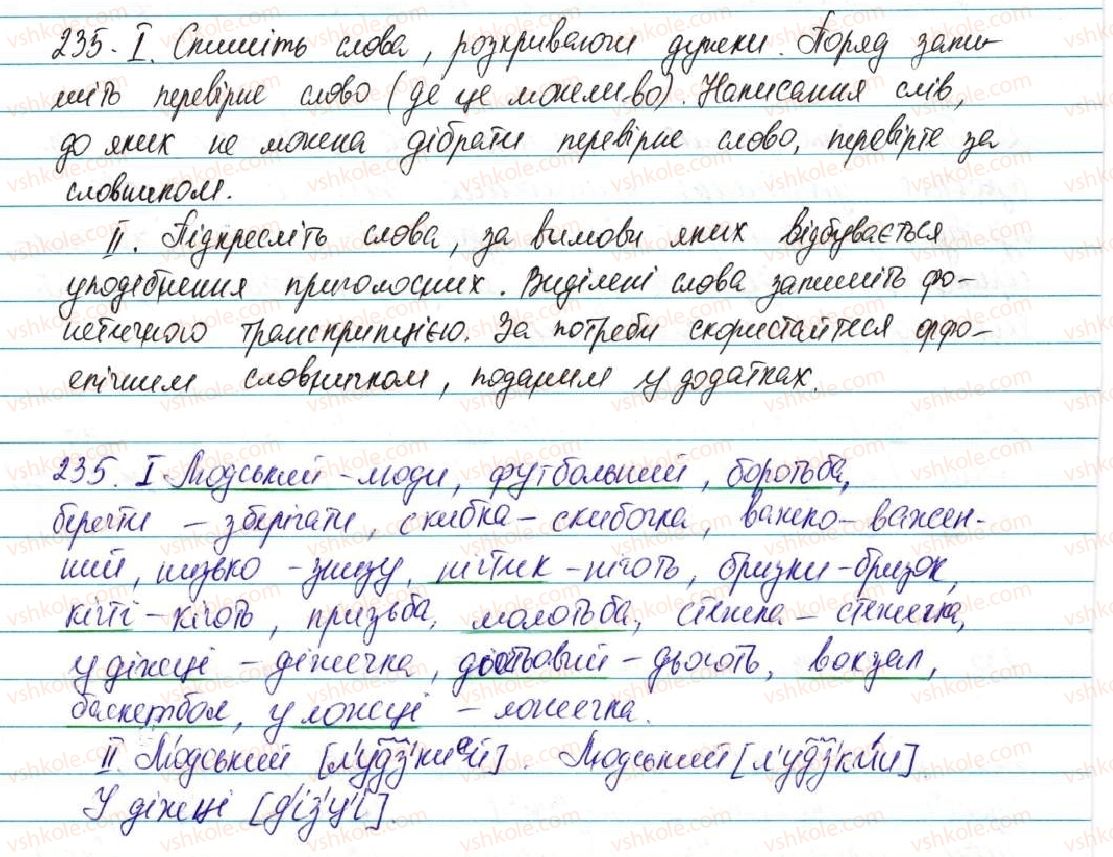 235. I. Спишіть слова, розкриваючи дужки. Поряд запи-
шіть перевірне слово (де це можливо). Написання слів,
до яких не можна дібрати перевірне слово, перевірте за
словником.
II. Підкресліть слова, за вимови яких відбувається
уподібнення приголосних. Виділені слова запишіть фо-
нетичною транскрипцією. За потреби скористайтеся орфо-
епічним словничком, поданим у додатках.
235. I. Людський – люди, футбольний, боротьба,
берегти – зберігати, скибка – скибочка, важко – важен-
ний, низько – знизу, нігтик – ніготь, бризки – бризок,
кігті – кіготь, призьба, молотьба, стежка – стежечка,
у діжці – діжечка, дьогтьовий – дьоготь, вокзал,
баскетбол, у ложці – ложечка.
II. Людський . Людський
У діжці [д'із'ц'і].
vshkole.com